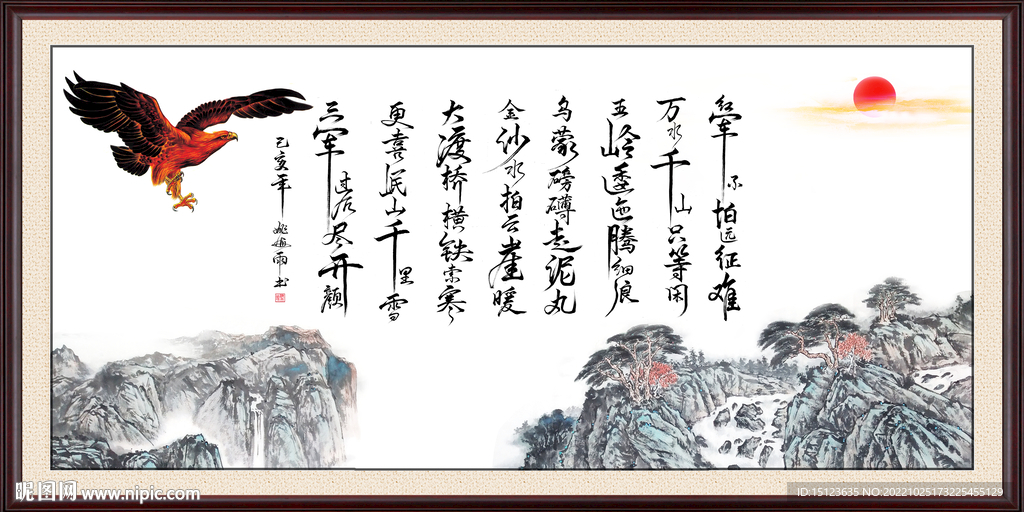 红军不怕远征难
万水千山只等闲
五岭逶迤腾细浪
乌蒙磅礴走泥丸
金沙水拍云崖暖
大渡桥横铁索寒
更喜岷山千里雪
三军过后尽开颜
己亥年
雨书
昵图网 www.nipic.com
ID:15123635 NO:20221025173225455129